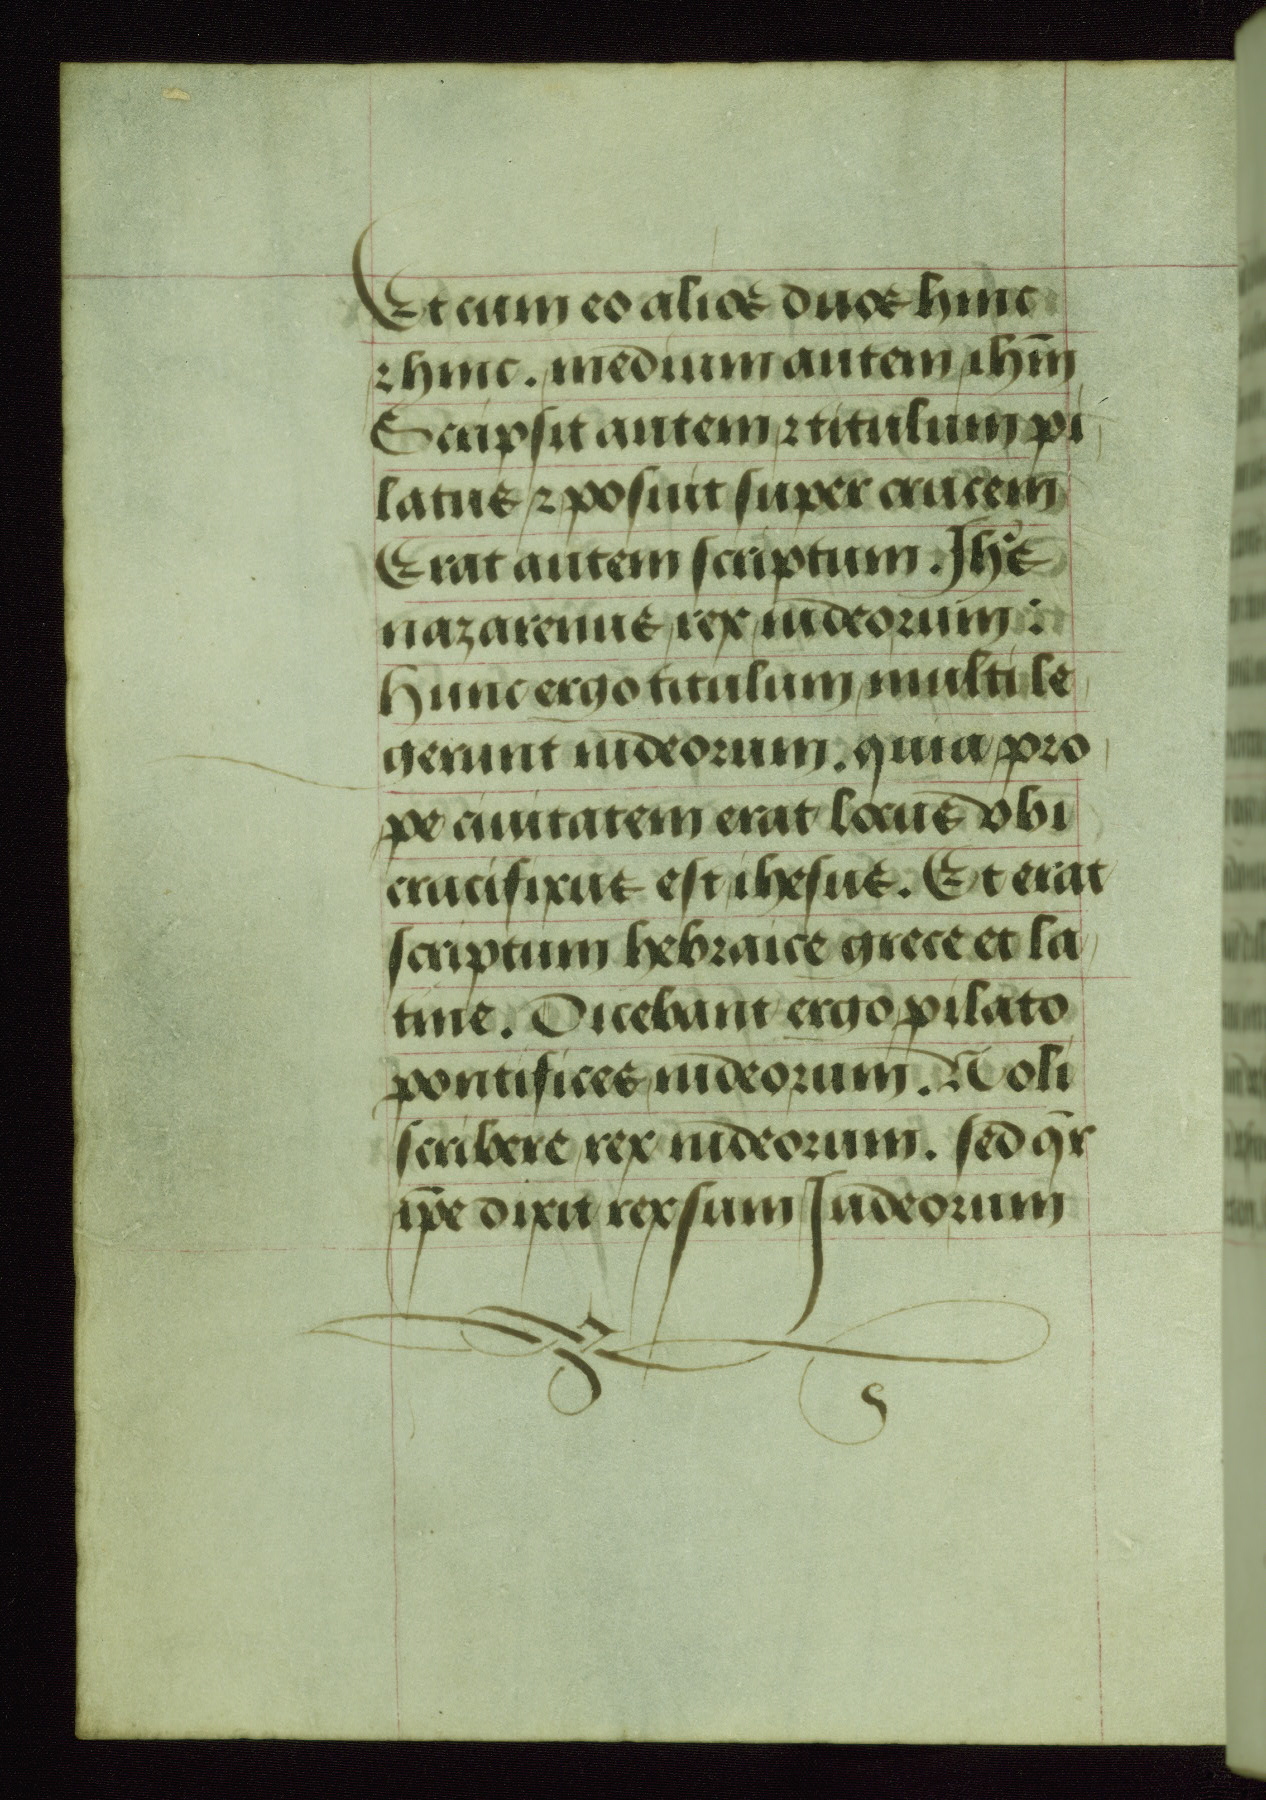 Et cum eo alios duos hinc
⁊ hinc. medium autem ihm̄
Scripsit autem ⁊ titulum pi
latus ⁊ posuit super crucem
Erat autem scriptum. Jhs̄
nazarenus rex iudeorum:
Hunc ergo titulum multi le
gerunt iudeorum. quia pro
pe ciuitatem erat locus vbi
crucifixus est ihesus. Et erat
scriptum hebraice grece et la
tine. Dicebant ergo pilato
pontifices iudeorum. Noli
scribere rex iudeorum. sed q̄r
ip̄e dixit rex sum Judeorum